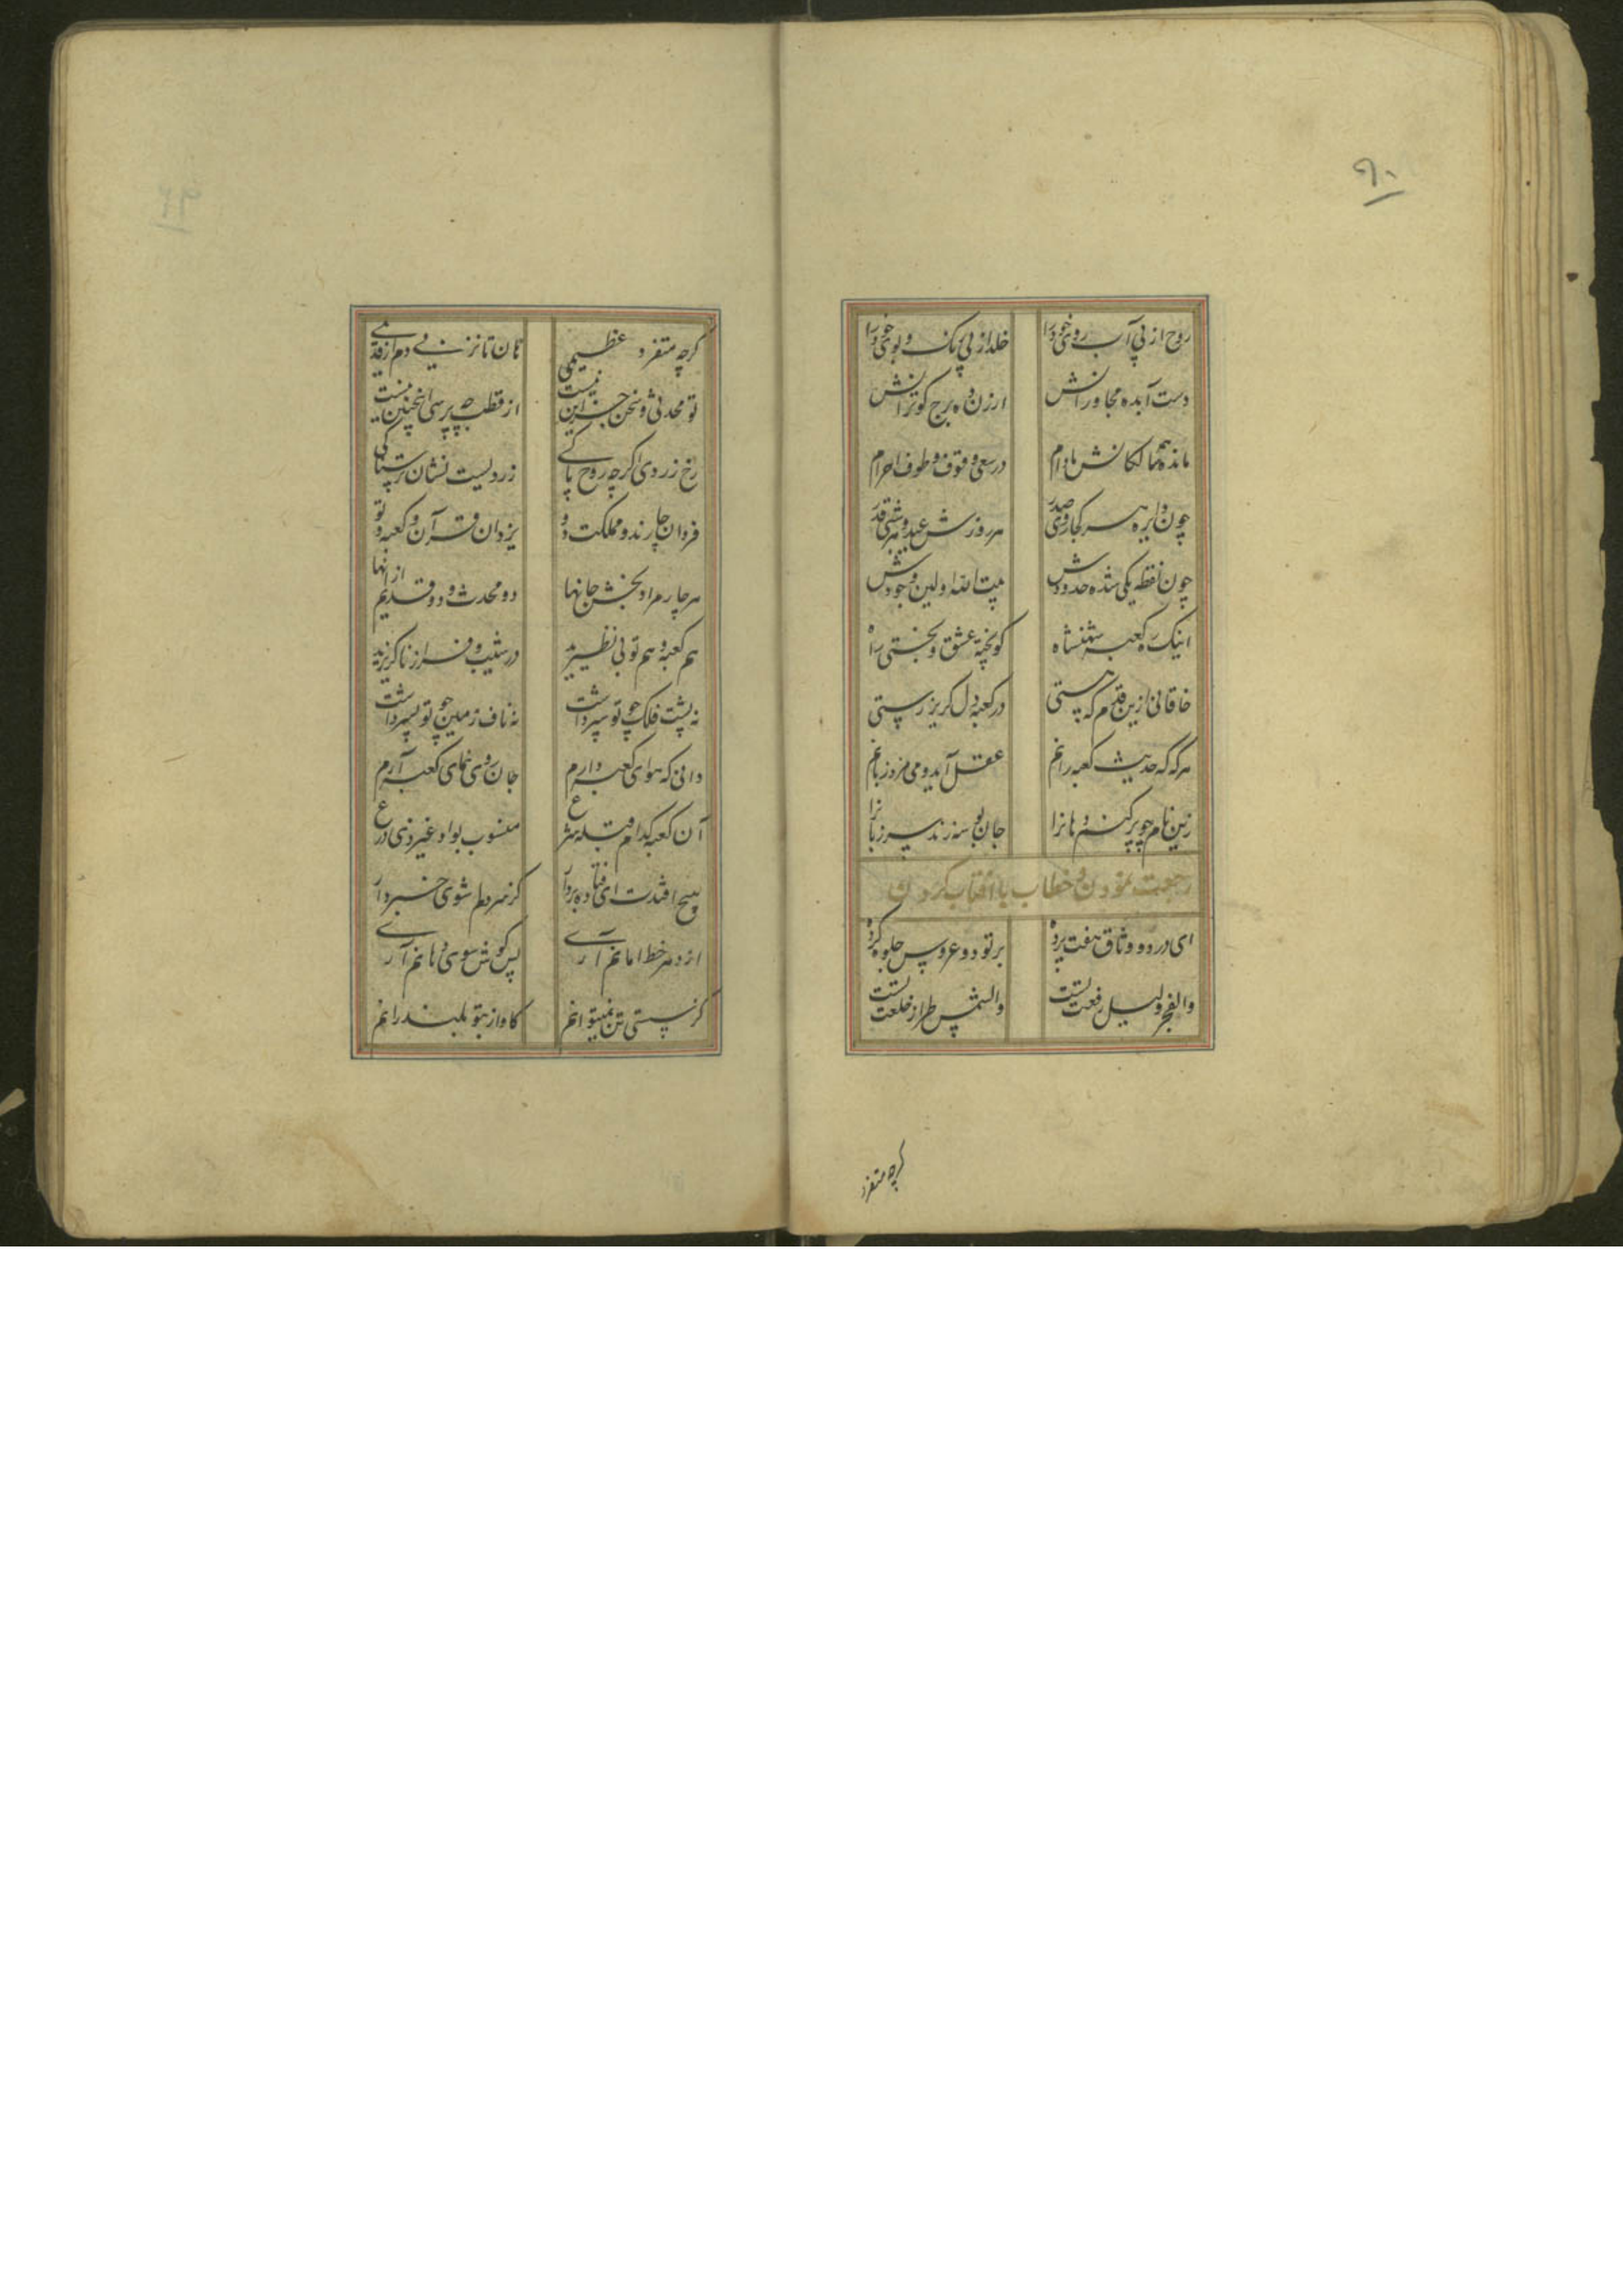 ۹۰
روح از پی آب روی خود را
خلد از پی رنگ و بوی خود را
دست آبده مجاورانش
ارزن ده برج کوترانش
مانده همه سالکانش مادام
در سعی و وقوف و طوف و احرام
چون دایره هر سر کجا روی صدر
هر روزش عید و هر شبی قدر
چون نقطه یکی شده حدودش
بیت الله اولین وجودش
اینک ره کعبه شهنشاه
کو پخته عشق و بختی راه
خاقانی ازین قدم که هستی
در کعبه دل گریز رستی
هر گه که حدیث کعبه رانم
عقل آید و می مزد زبانم
زین نام چو پر کنم دهانرا
جان بوسه زند سر زبانرا
رجعت نمودن و خطاب با آفتاب کردن
ای در دو وثاق هفت پرده
بر تو دو عروس جلوه کرده
والفجر ولیل رفعت تست
والشمس طراز خلعت تست
کرچه متفرد
کرچه متفرد عظیمی
هان تا نزنی دم از قدیمی
تو محدثی و سخن جز این نیست
از قطب چه پرسی اینچنین نیست
رخ زردی اگرچه روح پاکی
زردیست نشان ترسناکی
فردان چارند و مملکت دو
یزدان و قرآن و کعبه و تو
هر چار مراد بخش جانها
دو محدث و دو قدیم از انها
هم کعبه و هم تو بی نظیرید
در شیب و فراز ناگزیرید
نه پشت فلک چو تو سپر داشت
نه ناف زمین چو تو پسر داشت
دانی که هوای کعبه دارم
جان روی نمای کعبه آرم
آن کعبه کدام قبله شرع
منسوب بواد غیر ذی زرع
هیچ افتدت ای فتاده بردار
کز سر دلم شوی خبردار
از دهر خط امانم آری
پس گوش سوی دهانم آری
کز پستی تن نمیتوانم
کاواز بتو بلند رانم